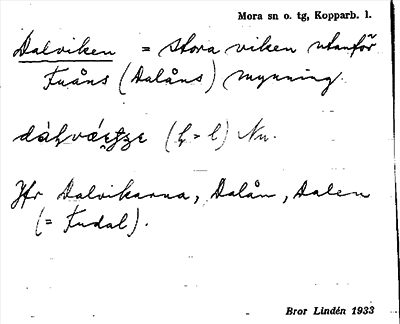 Mora sn o. tg, Kopparb. l.
Dalviken = stora viken utanför
Fuåns (Dalåns) mynning.
(ḷ = l) Nu.
Jfr Dalvikarna, Dalån, Dalen
(= Fudal).
Bror Lindén 1933